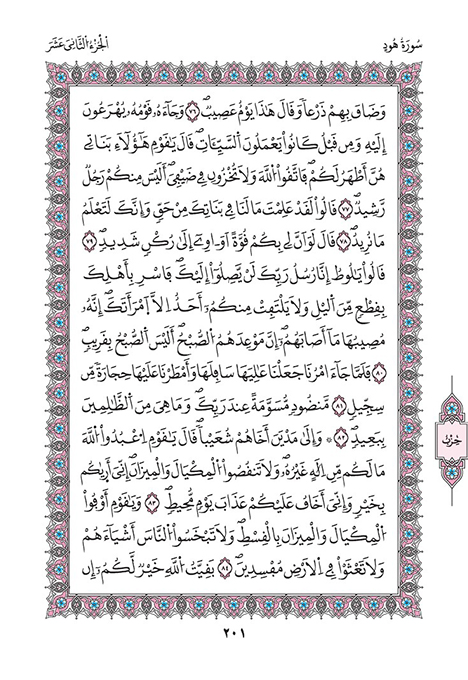 سُورَةُ هُودٍ
اَلْجُزْءُ الثَّانِىَ عَشَرَ
وَضَاقَ بِهِمْ ذَرْعاً وَقَالَ هَٰذَا يَوْمٌ عَصِيبٌ ٧٦ وَجَآءَهُۥ قَوْمُهُۥ يُهْرَعُونَ
إِلَيْهِ وَمِن قَبْلُ كَانُواْ يَعْمَلُونَ اَ۬لسَّيِّـَٔاتِ قَالَ يَٰقَوْمِ هَٰٓؤُلَآءِ بَنَاتِے
هُنَّ أَطْهَرُ لَكُمْ فَاتَّقُواْ اُ۬للَّهَ وَلَا تُخْزُونِ فِے ضَيْفِىَ أَلَيْسَ مِنكُمْ رَجُلٌ
رَّشِيدٌ ٧٧ قَالُواْ لَقَدْ عَلِمْتَ مَا لَنَا فِے بَنَاتِكَ مِنْ حَقٍّ وَإِنَّكَ لَتَعْلَمُ
مَا نُرِيدُ ٧٨ قَالَ لَوَ اَنَّ لِے بِكُمْ قُوَّةً اَوَ اٰوِےٓ إِلَىٰ رُكْنٍ شَدِيدٍ ٧٩
قَالُواْ يَٰلُوطُ إِنَّا رُسُلُ رَبِّكَ لَنْ يَّصِلُوٓاْ إِلَيْكَ فَاسْرِ بِأَهْلِكَ
بِقِطْعٍ مِّنَ اَ۬ليْلِ وَلَا يَلْتَفِتْ مِنكُمُۥٓ أَحَدٌ اِلَّا اَ۪مْرَأَتَكَ إِنَّهُۥ
مُصِيبُهَا مَآ أَصَابَهُمُۥٓ إِنَّ مَوْعِدَهُمُ اُ۬لصُّبْحُ أَلَيْسَ اَ۬لصُّبْحُ بِقَرِيبٍ
٨٠ فَلَمَّا جَآءَ امْرُنَا جَعَلْنَا عَٰلِيَهَا سَافِلَهَا وَأَمْطَرْنَا عَلَيْهَا حِجَارَةً مِّن
سِجِّيلٍ ٨١ مَّنضُودٍ مُّسَوَّمَةً عِندَ رَبِّكَ وَمَا هِىَ مِنَ اَ۬لظَّٰلِمِينَ
بِبَعِيدٍ ٨٢ ۞ وَإِلَىٰ مَدْيَنَ أَخَاهُمْ شُعَيْباً قَالَ يَٰقَوْمِ اِ۟عْبُدُواْ اُ۬للَّهَ
مَا لَكُم مِّنِ اِلَٰهٍ غَيْرُهُۥ وَلَا تَنقُصُواْ اُ۬لْمِكْيَالَ وَالْمِيزَانَ إِنِّىَ أَر۪ىٰكُم
بِخَيْرٍ وَإِنِّىَ أَخَافُ عَلَيْكُمْ عَذَابَ يَوْمٍ مُّحِيطٍ ٨٣ وَيَٰقَوْمِ أَوْفُواْ
اُ۬لْمِكْيَالَ وَالْمِيزَانَ بِالْقِسْطِ وَلَا تَبْخَسُواْ اُ۬لنَّاسَ أَشْيَآءَهُمْ
وَلَا تَعْثَوْاْ فِے اِ۬لَارْضِ مُفْسِدِينَ ٨٤ بَقِيَّتُ اُ۬للَّهِ خَيْرٌ لَّكُمُۥٓ إِن
حِزْبٌ
٢٠١